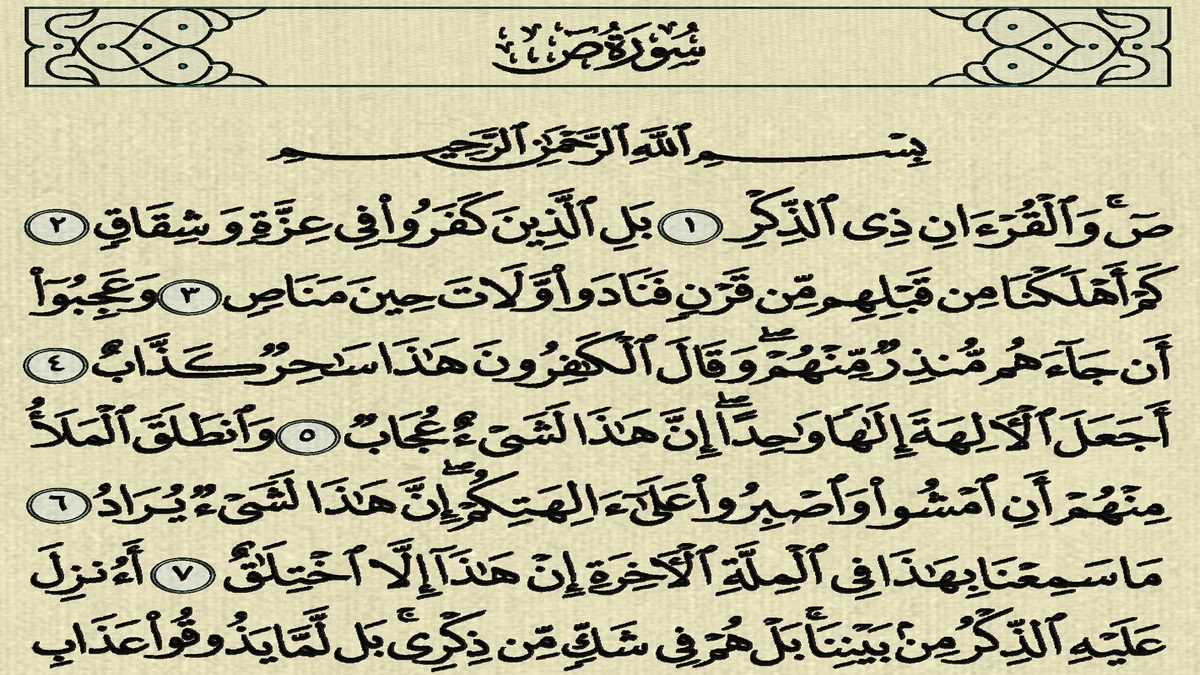 سُورَةُ صٓ
بِسْمِ ٱللَّهِ ٱلرَّحْمَٰنِ ٱلرَّحِيمِ
صٓ ۚ وَٱلْقُرْءَانِ ذِى ٱلذِّكْرِ ١ بَلِ ٱلَّذِينَ كَفَرُوا۟ فِى عِزَّةٍ وَشِقَاقٍ ٢
كَمْ أَهْلَكْنَا مِن قَبْلِهِم مِّن قَرْنٍ فَنَادَوا۟ وَّلَاتَ حِينَ مَنَاصٍ ٣ وَعَجِبُوٓا۟
أَن جَآءَهُم مُّنذِرٌ مِّنْهُمْ ۖ وَقَالَ ٱلْكَٰفِرُونَ هَٰذَا سَٰحِرٌ كَذَّابٌ ٤
أَجَعَلَ ٱلْءَالِهَةَ إِلَٰهًا وَٰحِدًا ۖ إِنَّ هَٰذَا لَشَىْءٌ عُجَابٌ ٥ وَٱنطَلَقَ ٱلْمَلَأُ
مِنْهُمْ أَنِ ٱمْشُوا۟ وَٱصْبِرُوا۟ عَلَىٰٓ ءَالِهَتِكُمْ ۖ إِنَّ هَٰذَا لَشَىْءٌ يُرَادُ ٦
مَا سَمِعْنَا بِهَٰذَا فِى ٱلْمِلَّةِ ٱلْءَاخِرَةِ إِنْ هَٰذَآ إِلَّا ٱخْتِلَٰقٌ ٧ أَءُنزِلَ
عَلَيْهِ ٱلذِّكْرُ مِنۢ بَيْنِنَا ۚ بَلْ هُمْ فِى شَكٍّ مِّن ذِكْرِى ۚ بَل لَّمَّا يَذُوقُوا۟ عَذَابِ